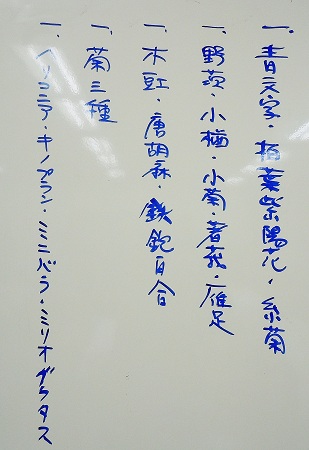 一、青文字・柏葉紫陽花・糸菊
一、野茨・小楢・小菊・著莪・雁足
一、木豇・唐胡麻・鉄砲百合
一、菊三種
一、ヘリコニア・キノブラン・ミニバラ・ミリオグラタス